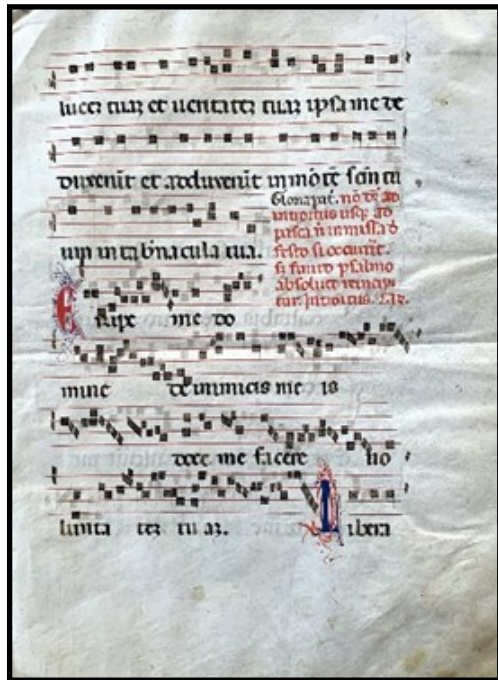 lucez tuaz et ueritatez tuaz ipsa me de
duxerit et adduxerit in mōtē san ctu
um in tab'nacula tua.
Gloria pat. nō dr̄ ad
introitus usqz ad
pasca n̄ in missa d
festo si occurrit.
sz finito psalmo
absolute reincipi
tur. Introitus.
Eripe me do
mine de inimicis me is
doce me facere uo
lunta tez tu az. Libera